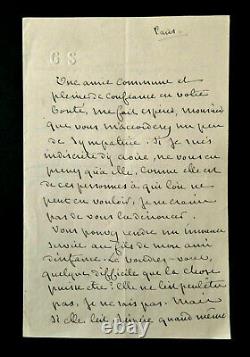 Paris
G S
Une amie commune et
pleine de confiance en votre
bonté, me fait espérer, monsieur
que vous m'accorderez un peu
de sympathie. Si je suis
indiscrète d'y croire, ne vous en
prenez qu'à elle. Comme elle est
de ces personnes à qui l'on ne
peut en vouloir, je ne crains
pas de vous la dénoncer.
Vous pouvez rendre un immense
service au fils de mon ami
d'enfance. Le voudrez-vous,
quelque difficile que la chose
puisse être? Elle l'est peut-être
pas, je ne sais pas. Mais
si elle l'est, service quand même